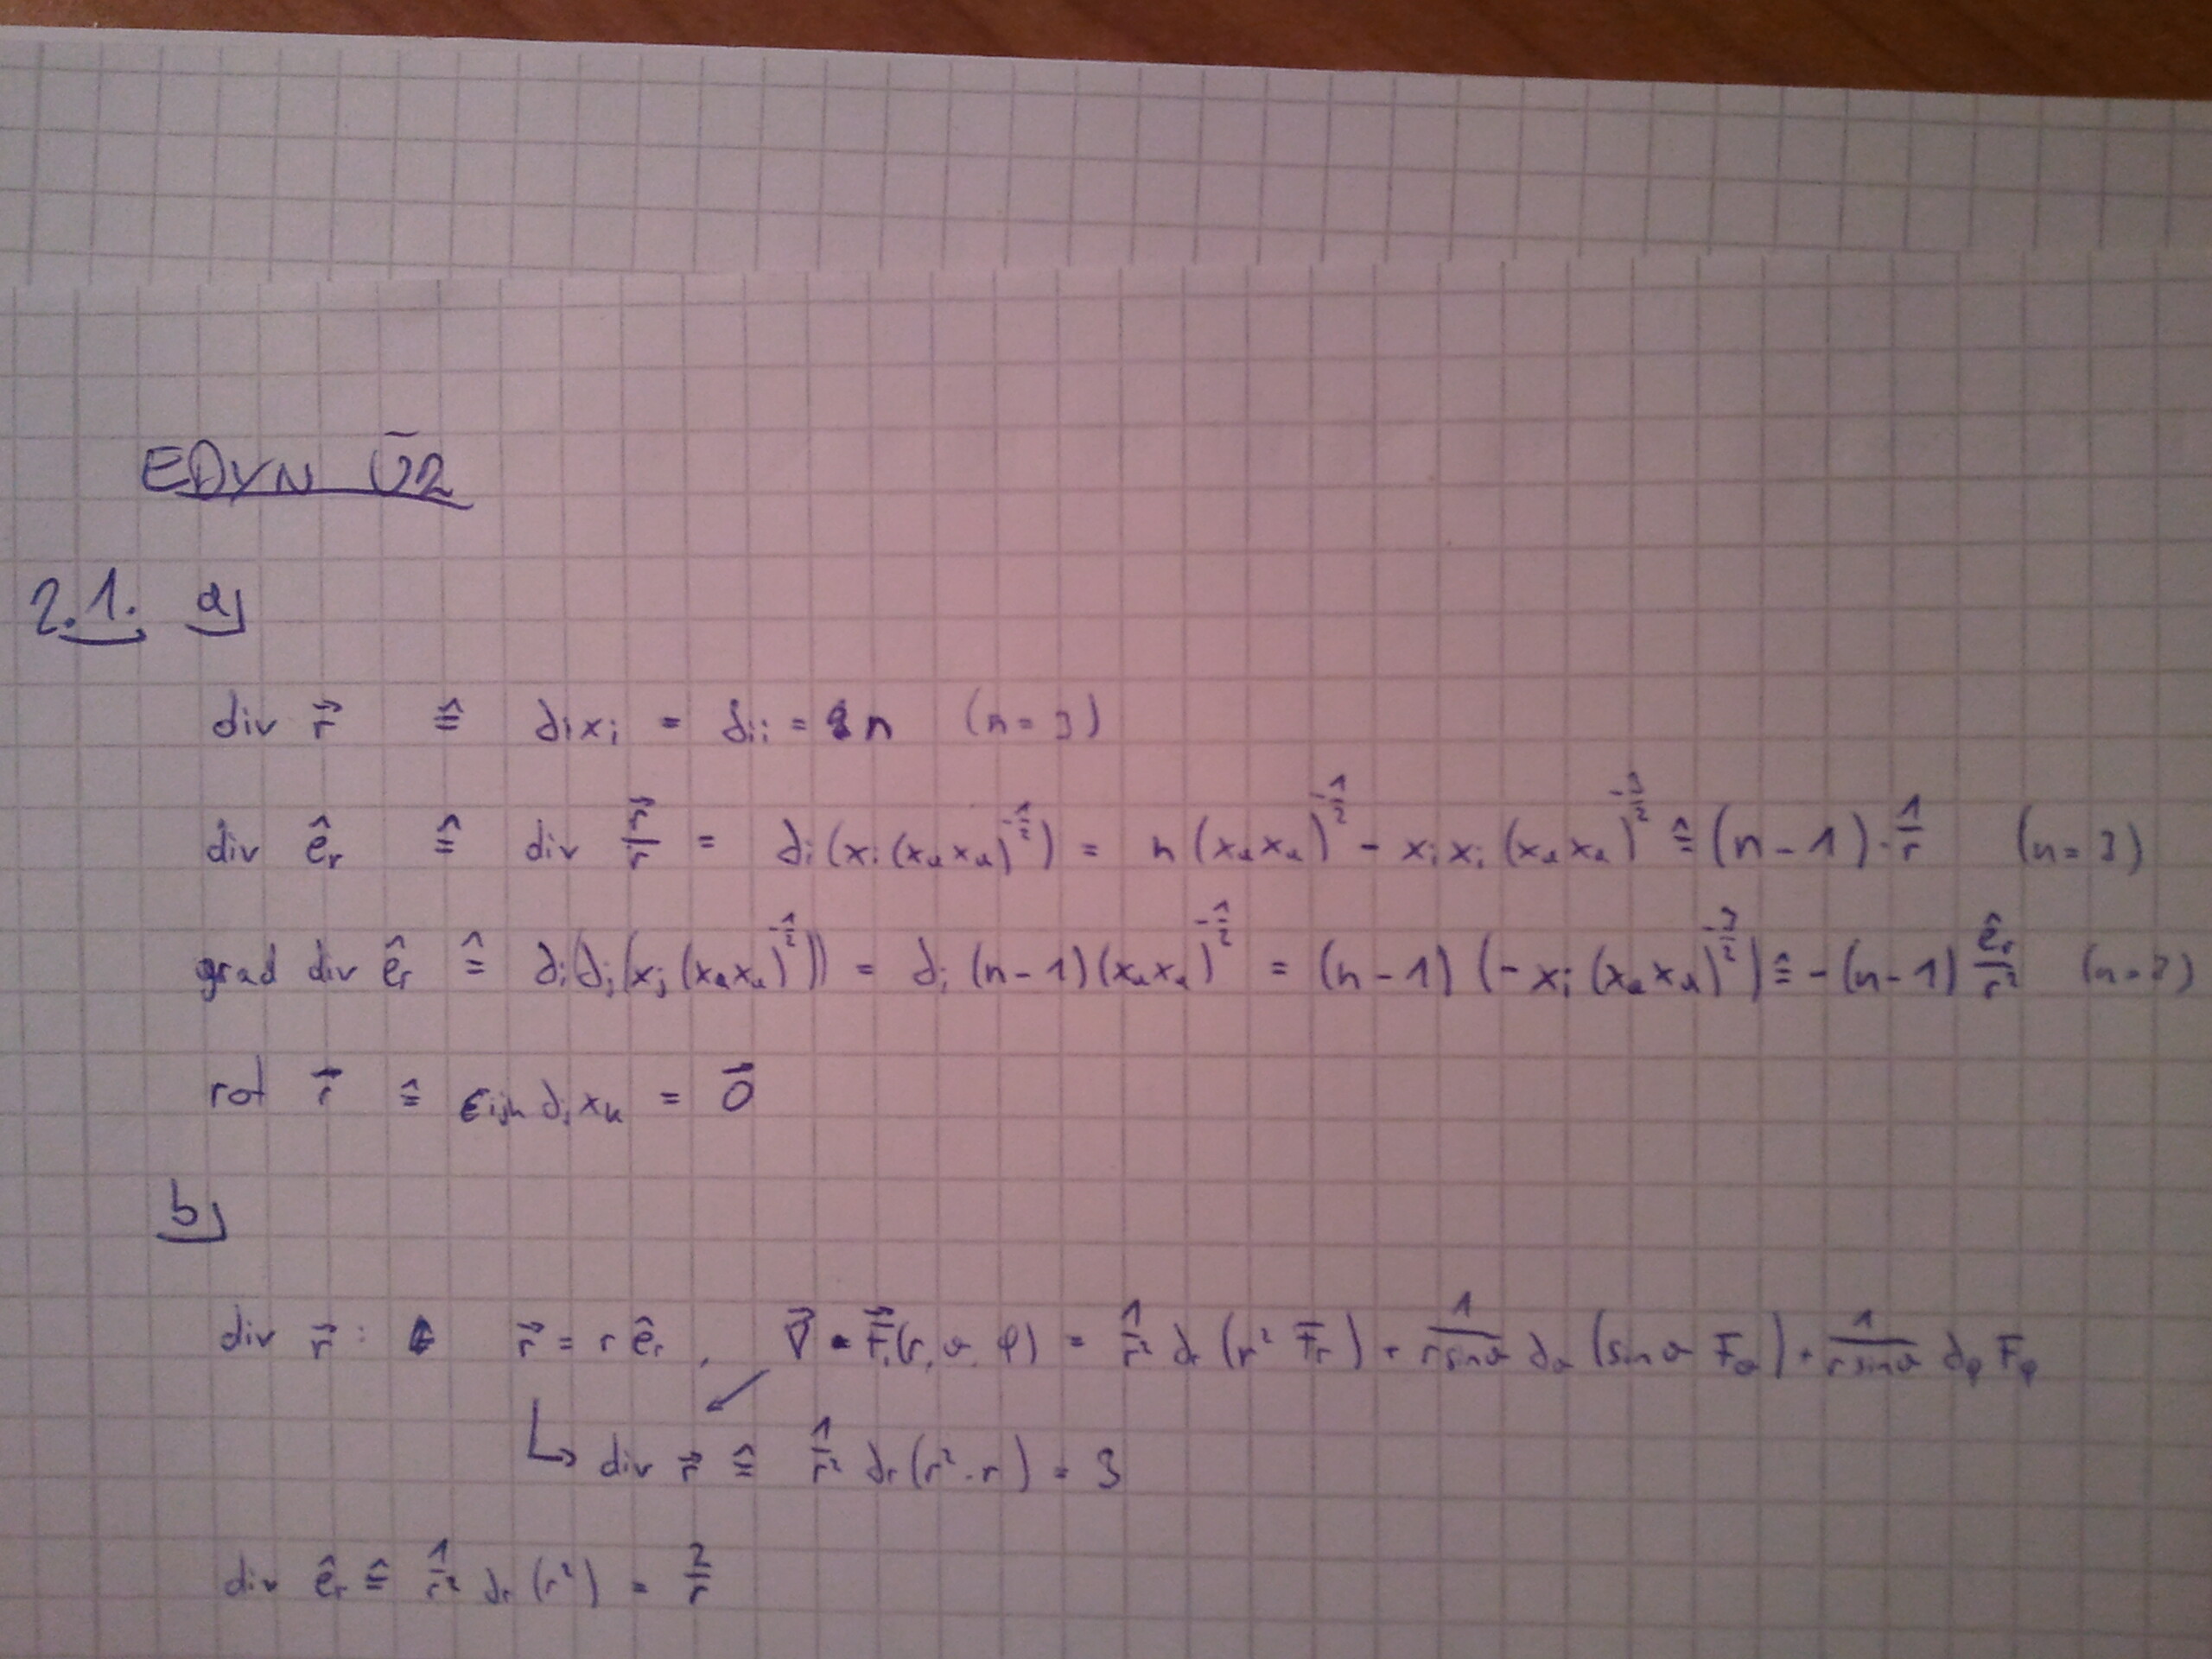 EDYN Ü2
2.1. a)
div r⃗ ≙ ∂ᵢxᵢ = δᵢᵢ = n (n = 3)
div êᵣ ≙ div r⃗/r = ∂ᵢ(xᵢ(xₖxₖ)^(-1/2)) = n(xₖxₖ)^(-1/2) - xᵢxᵢ(xₖxₖ)^(-3/2) ≙ (n-1)·1/r (n=3)
grad div êᵣ ≙ ∂ᵢ(∂ⱼ(xⱼ(xₖxₖ)^(-1/2))) = ∂ᵢ(n-1)(xₖxₖ)^(-1/2) = (n-1)(-xᵢ(xₖxₖ)^(-3/2)) ≙ -(n-1) êᵣ/r² (n=3)
rot r⃗ ≙ εᵢⱼₖ∂ⱼxₖ = 0⃗
b)
div r⃗ : r⃗ = r êᵣ , ∇⃗ · F⃗(r, ϑ, φ) = 1/r² ∂ᵣ(r² Fᵣ) + 1/(r sinϑ) ∂_ϑ(sinϑ F_ϑ) + 1/(r sinϑ) ∂_φ F_φ
↳ div r⃗ ≙ 1/r² ∂ᵣ(r²·r) = 3
div êᵣ ≙ 1/r² ∂ᵣ(r²) = 2/r